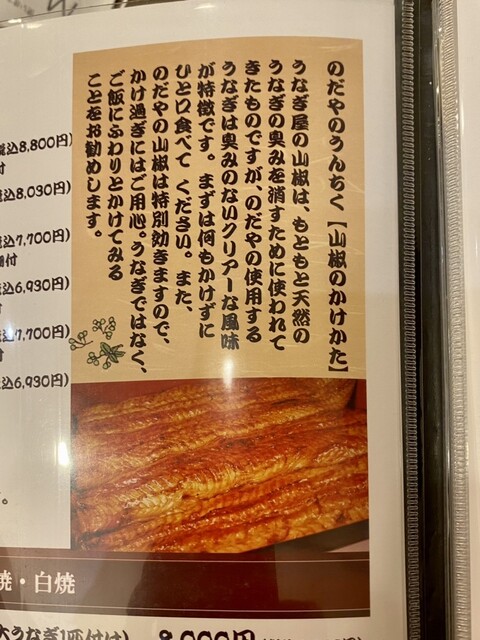 のだやのうんちく【山椒のかけかた】
うなぎ屋の山椒は、もともと天然の
うなぎの臭みを消すために使われて
きたものですが、のだやの使用する
うなぎは臭みのないクリアーな風味
が特徴です。まずは何もかけずに
ひと口食べて ください。また、
のだやの山椒は特別効きますので、
かけ過ぎにはご用心。うなぎではなく、
ご飯にふわりとかけてみる
ことをお勧めします。
税込8,800円)
付
税込8,030円)
税込7,700円)
付
込6,930円)
付
7,700円)
付
込6,930円)
。
焼・白焼
大うなぎ1匹付け)